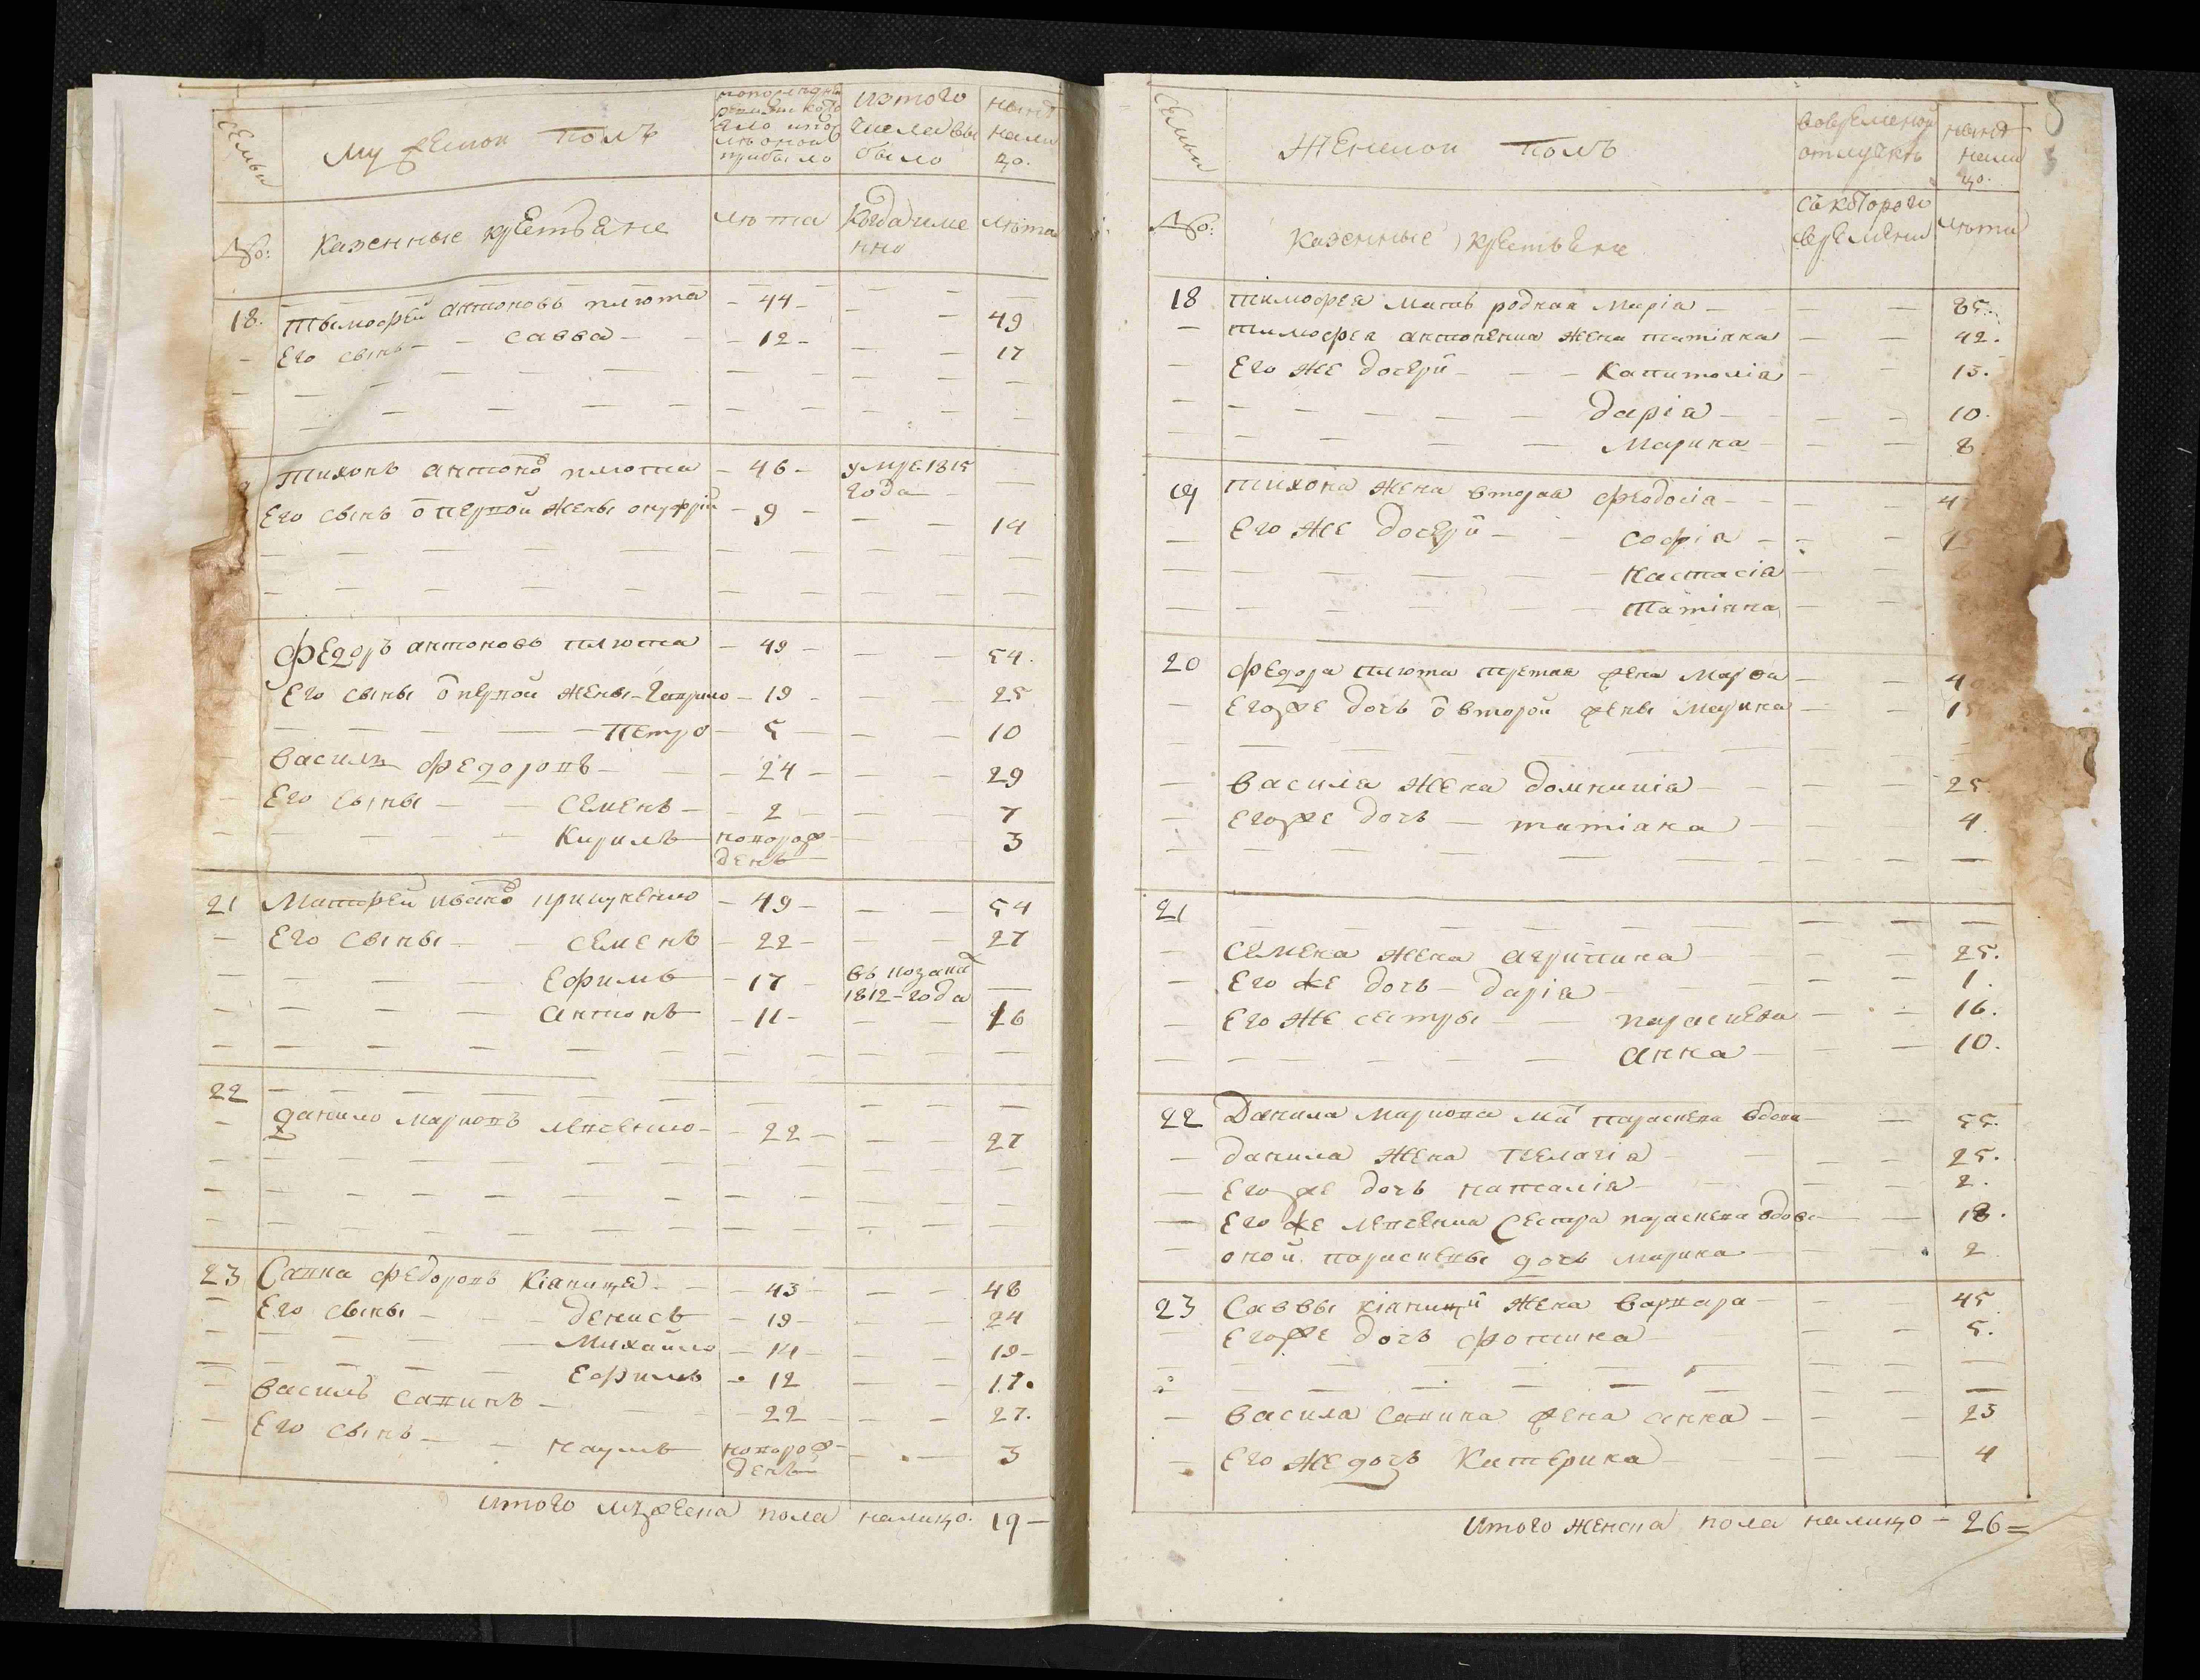 семьи
мужескои полъ
попоследнѣ ревизіи состо яло и после оной прибыло
изтого числа вы было
нынѣ нали цо.
№:
казенные крестьяне
лѣта
когда име нно
лѣта
18. тымофей антоновъ плюта – 44 – – – 49
– Его сынъ – – савва – – 12 – – – 17
тихонъ антоно плюта – 46 – умре 1815 года –
Его сынъ о первой жены онуфрій – 9 – – – 14
федоръ антоновъ плюта – 49 – – – 54.
Его сыны о первой жены – гаврило – 19 – – 25
– – – – петро – 5 – – 10
василь федоровъ – – 24 – – – 29
Его сыны – – семенъ – 2 – – – 7
– – – – кирилъ новорож денъ – – 3
21 Матфей ивано – 49 – – – 54
– Его сыны – – семенъ – 22 – – – 27
– – – – Ефимъ – 17 – въ 1812 – года –
– – – – антонъ – 11 – – – 16
22 – – – – – –
– данило марковъ – 22 – – – 27
23 Савка федоровъ кіяница – – 43 – – – 48
– Его сыны – – денисъ – 19 – – – 24
– – – – Михайло – 14 – – – 19 –
– – – – Ефимъ – 12 – – 17.
– василь савинъ – – 22 – – – 27.
– Его сынъ – – наумъ новорож – денъ – – 3
итого мужеска пола налицо. 19 –
семьи
женскои полъ
вовременной отлучкѣ
нынѣ нали цо.
№:
казенные крестьяне
съ котораго времени
лѣта
18 тимофея мать родная маріа – – – 85.
– тимофея антонѣнка жена татіяна – – 42.
– Его же дочери – – капитоліа – – 13.
– – – – – дарія – – – 10.
– – – – – марина – – – 8
19 тихона жена вторая феодосіа – –
– Его же дочери – – софія – –
– – – – – настасія – –
– – – – – татіяна – –
20 федора плюта третяя жена марфа – –
– Егоже дочь о второй жены марина – –
– василя жена домникіа – – – 25.
– Егоже дочь – татіяна – – – 4.
21 – – –
– семена жена агрипина – – 25.
– Его же дочь – дарія – – – 1.
– Его же сестры – – параскева – – 16.
– – – – – анна – – – 10.
22 Данила маркова параскева вдова – – 55.
– данила жена пелагіа – – – 25.
– Егоже дочь наталія – – – 2.
– Его же сестра параскева вдова – – 18.
– оной параскевы дочь марина – – – 2
23 Саввы кіяници жена варвара – – – 45
– Егоже дочь фотина – – – 5.
– василя савина жена анна – – – 23
– Его же дочь катерина – – – 4
итого женска пола налицо – 26 =